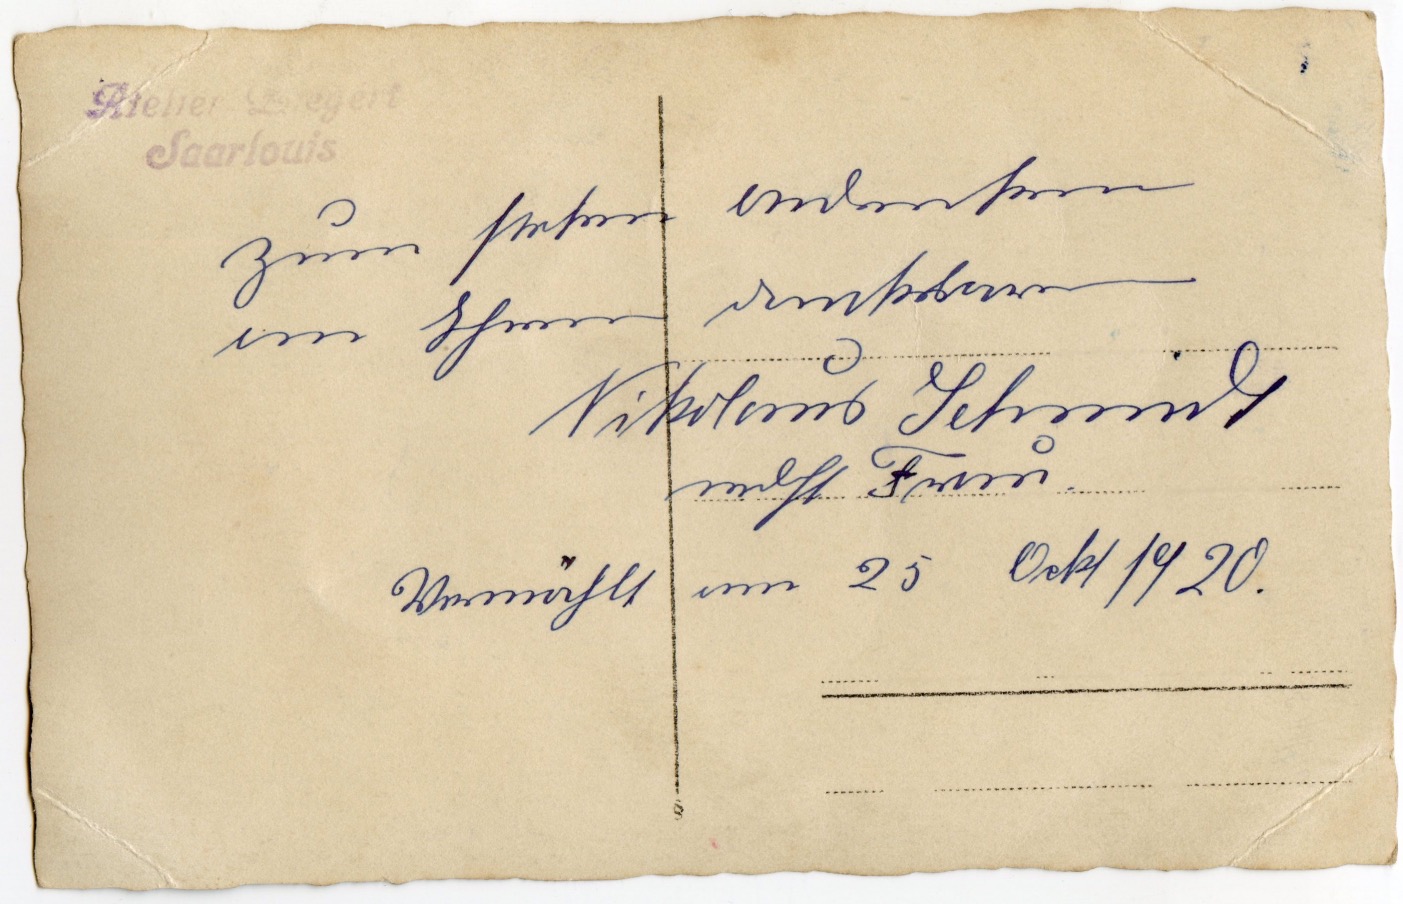 Atelier
Saarlouis
Zum steten andenken
an Ihren dankbaren
Nikolaus Schmidt
nebst Frau.
Vermählt am 25 Okt 1920.